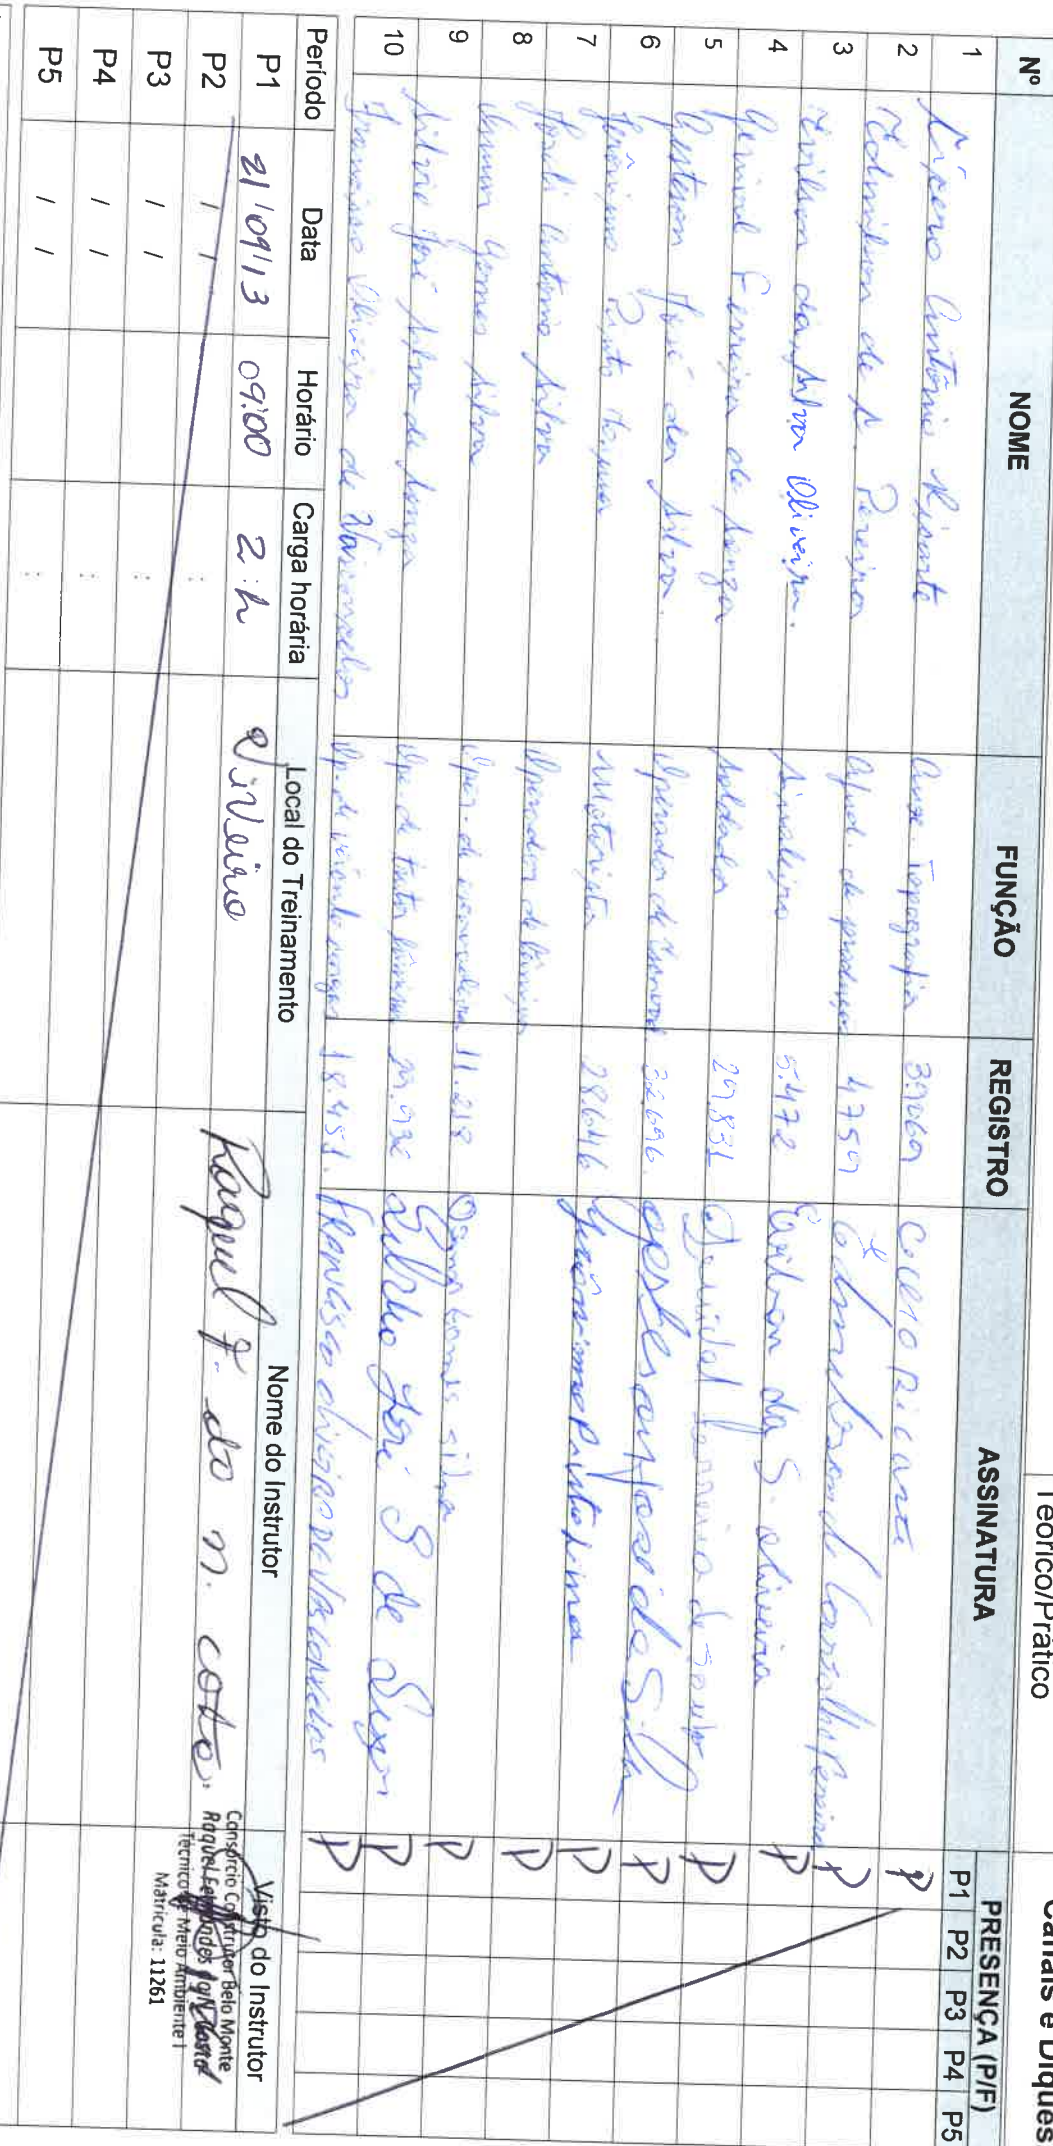 Teórico/Prático
Canais e Diques
Nº NOME FUNÇÃO REGISTRO ASSINATURA PRESENÇA (P/F)
P1 P2 P3 P4 P5
1 Cícero Antônio Ricarte Aux. Topografia Cicero Ricarte P
2 Edmilson de S. Pereira Ajud. de produção 4759 P
3 Evilson da Silva Oliveira. Sinaleiro 5.472 Evilson da S. oliveira P
4 Genival Ferreira de Souza Soldador 29.831 Genival Ferreira de Souza P
5 Gesteson José da Silva. Operador de 32.696 José da Silva P
6 Jerônimo Pinto de Lima Motorista 28646 Jerônimo Pinto Lima P
7 Antonio Silva Operador de P
8 Osmar Gomes Silva Oper. de escavadeira 11.218 Osmar Gomes silva P
9 Silvio José Silva de Souza Op. de trator 29.932 Silvio José S de Souza P
10 Francisco Oliveira de Vasconcelos Op. de 18.451. Francisco oliveira de Vasconcelos P
Período Data Horário Carga horária Local do Treinamento Nome do Instrutor Visto do Instrutor
P1 21/09/13 09:00 2:h Viveiro Raquel F. do N. Costa.
Consórcio Construtor Belo Monte
Raquel Fernandes do N. Costa
Técnico de Meio Ambiente I
Matrícula: 11261
P2 / / :
P3 / / :
P4 / / :
P5 / / :